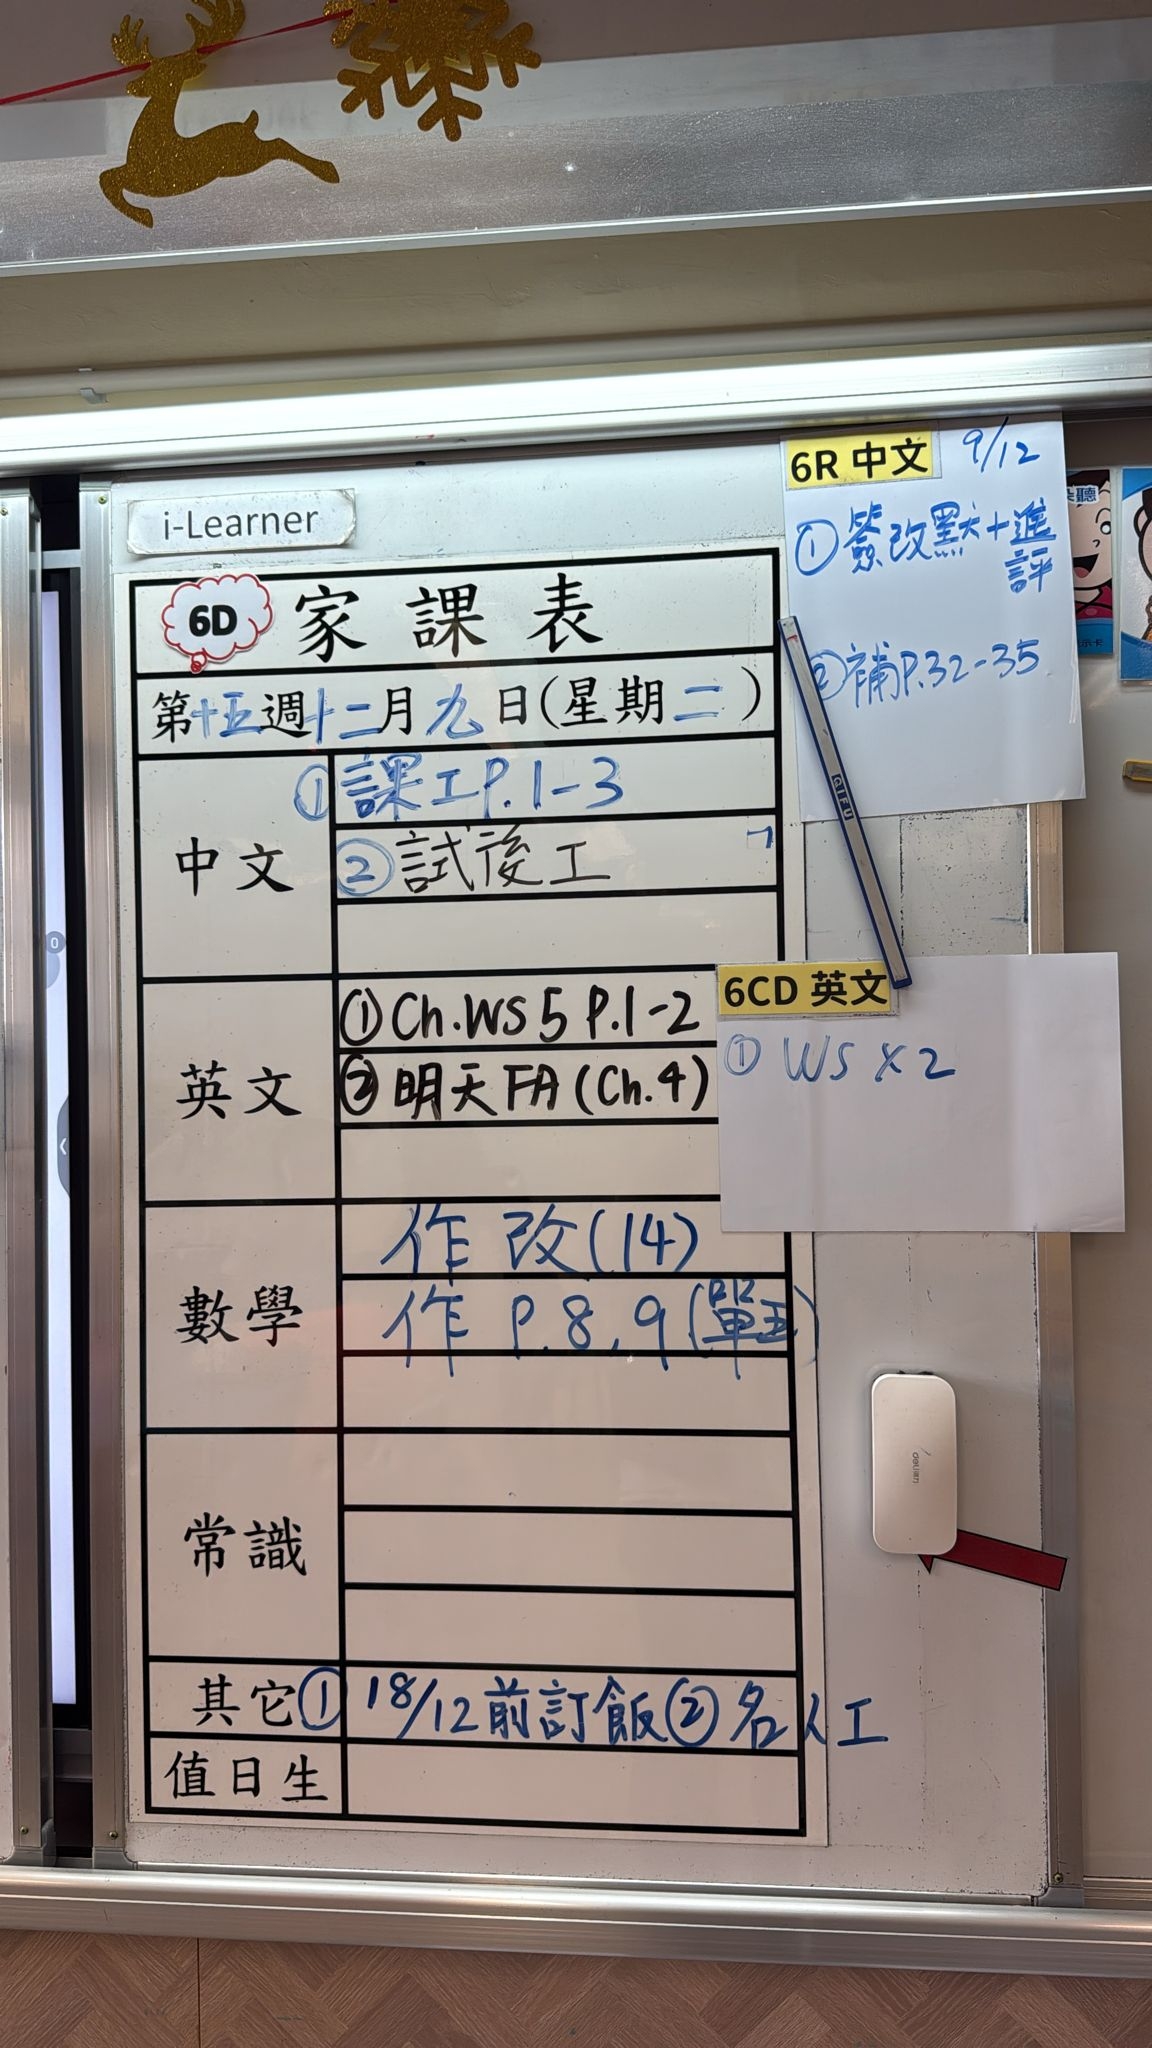 i-Learner
6D 家課表
第十五週十二月九日(星期二)
中文
①課工P.1-3
②試後工
英文
①Ch.WS 5 P.1-2
②明天FA(Ch.4)
數學
作改(14)
作 P.8,9(單五)
常識
其它① 18/12前訂飯②名人工
值日生
6R 中文 9/12
①簽改默+進
評
②補P.32-35
QIFU
6CD 英文
① WS×2
deli